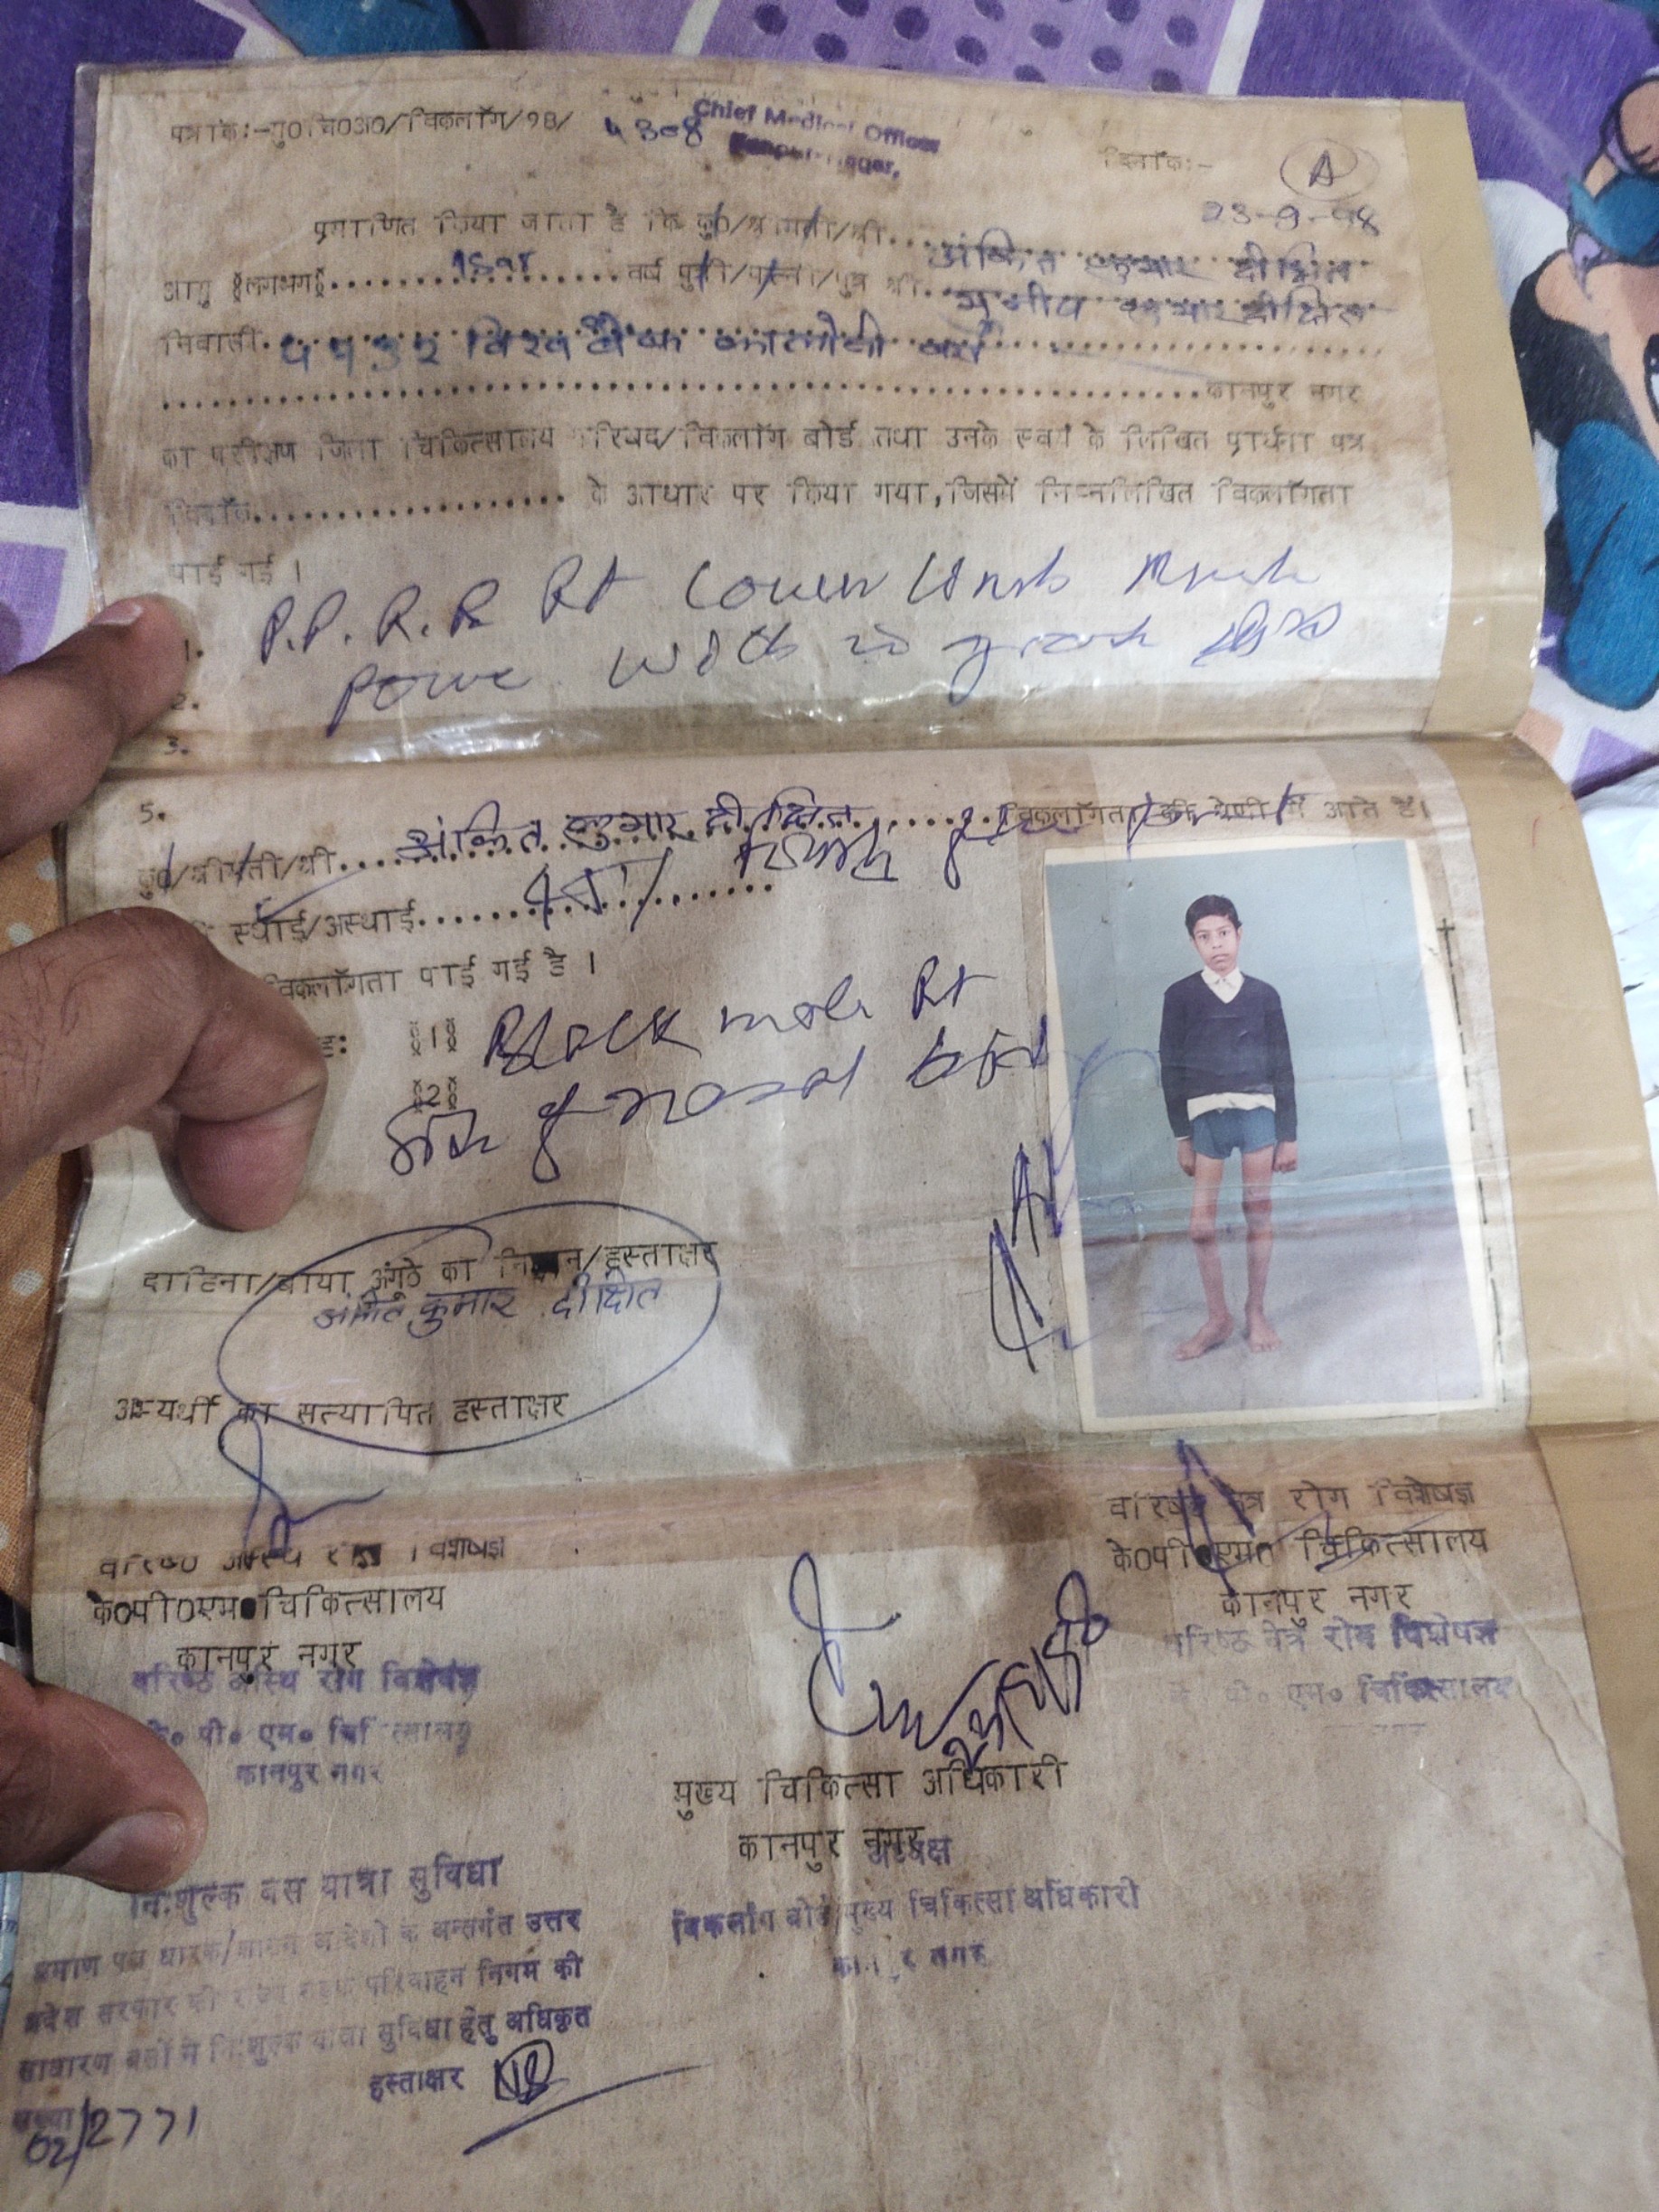 पत्रांक:-मु0चि0अ0/विकलाँग/98/ 4308
Chief Medical Officer
Kanpur-Nagar,
दिनांक:-
A
23-9-98
प्रमाणित किया जाता है कि कु0/श्रीमती/श्री...अंकित कुमार दीक्षित
आयु लगभग.....................वर्ष पुत्री/पत्नी/पुत्र श्री. कुमार दीक्षित
निवासी. विश्व बैंक कालोनी बर्रा
कानपुर नगर
का परीक्षण जिला चिकित्सालय परिषद/विकलाँग बोर्ड तथा उनके स्वयं के लिखित प्रार्थना पत्र
दिनाँक.................... के आधार पर किया गया,जिसमें निम्नलिखित विकलाँगता
पाई गई ।
1. P.P.R.R Rt Lower Limb
2. Power with
3.
5.
कु0/श्रीमती/श्री....अंकित कुमार दीक्षित.......विकलाँगता की श्रेणी में आते हैं।
स्थाई/अस्थाई....................
विकलाँगता पाई गई है ।
1 Black mole Rt
2 side of nasal
दाहिना/बाया अंगूठे का निशान/हस्ताक्षर
अंकित कुमार दीक्षित
अभ्यर्थी का सत्यापित हस्ताक्षर
वरिष्ठ अस्थि रोग विशेषज्ञ
के0पी0एम0चिकित्सालय
कानपुर नगर
वरिष्ठ अस्थि रोग विशेषज्ञ
के० पी० एम० चिकित्सालय
कानपुर नगर
वरिष्ठ नेत्र रोग विशेषज्ञ
के0पी0एम0 चिकित्सालय
कानपुर नगर
वरिष्ठ नेत्र रोग विशेषज्ञ
के० पी० एम० चिकित्सालय
नगर
मुख्य चिकित्सा अधिकारी
कानपुर नगर
अध्यक्ष
विकलाँग बोर्ड/मुख्य चिकित्सा अधिकारी
कानपुर नगर
नि:शुल्क बस यात्रा सुविधा
प्रमाण पत्र धारक/ के अन्तर्गत उत्तर
प्रदेश सरकार की राज्य सड़क परिवाहन निगम की
साधारण बसों में नि:शुल्क यात्रा सुविधा हेतु अधिकृत
हस्ताक्षर
संख्या
02/2771